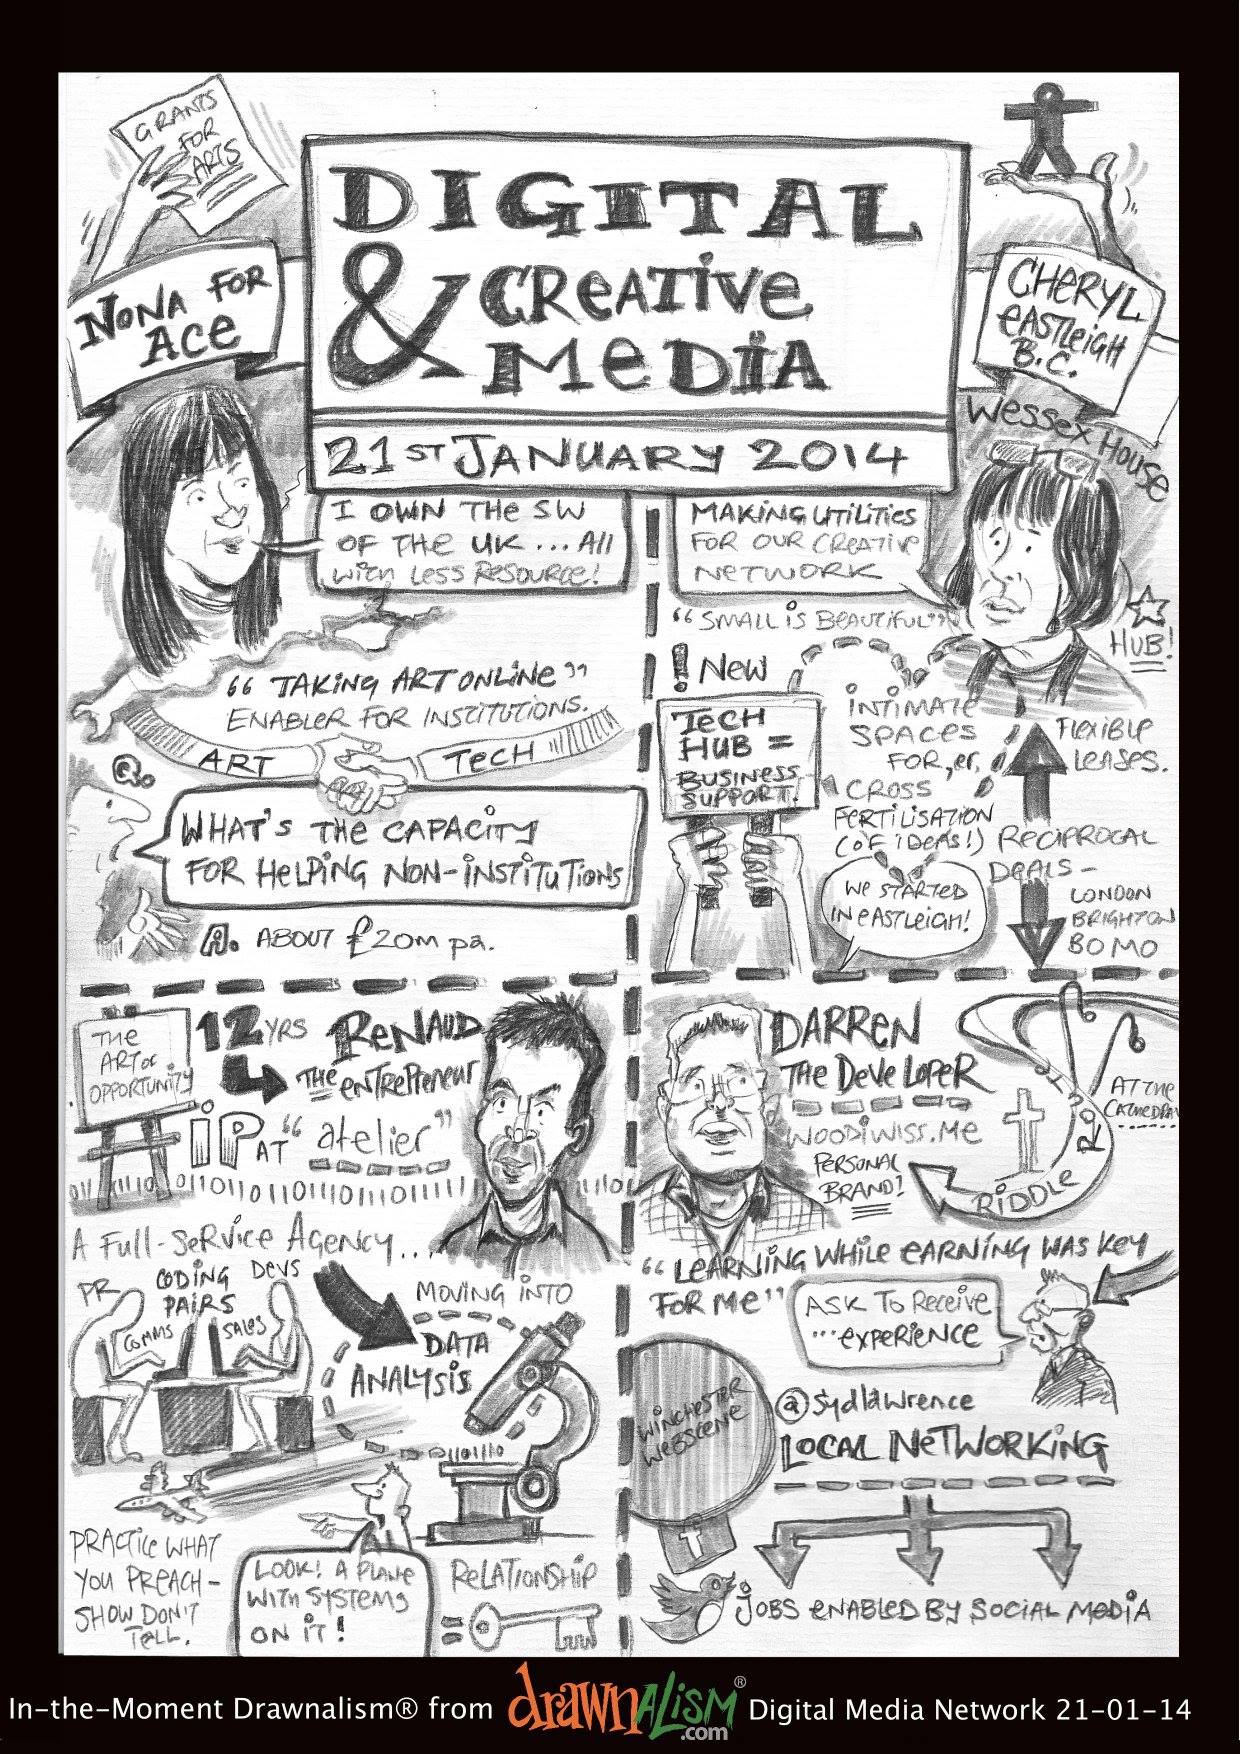 GRANTS
FOR
ARTS
NONA FOR
ACE
DIGITAL
& CREATIVE
MEDIA
21ST JANUARY 2014
CHERYL
EASTLEIGH
B.C.
WESSEX HOUSE
I OWN THE SW
OF THE UK ... All
WITH LESS RESOURCE!
MAKING UTILITIES
FOR OUR CREATIVE
NETWORK
"SMALL IS BEAUTIFUL"
HUB!
"TAKING ART ONLINE"
ENABLER FOR INSTITUTIONS.
ART
TECH
Q.
WHAT'S THE CAPACITY
FOR HELPING NON-INSTITUTIONS
A. ABOUT £20M pa.
! NEW
TECH
HUB =
BUSINESS
SUPPORT!
INTIMATE
SPACES
FOR, er,
CROSS
FERTILISATION
(OF IDEAS!)
FLEXIBLE
LEASES.
RECIPROCAL
DEALS -
LONDON
BRIGHTON
BOMO
WE STARTED
IN EASTLEIGH!
THE
ART OF
OPPORTUNITY
12 YRS
RENAUD
THE ENTREPRENEUR
iP AT "atelier"
A FULL-SERVICE AGENCY...
PR
CODING
PAIRS
DEVS
COMMS
SALES
MOVING INTO
DATA
ANALYSIS
PRACTICE WHAT
YOU PREACH -
SHOW DON'T
TELL.
LOOK! A PLANE
WITH SYSTEMS
ON IT!
RELATIONSHIP
=
DARREN
THE DEVELOPER
WOODIWISS.ME
PERSONAL
BRAND!
RIDDLE ROUTE
AT THE
CATHEDRAL
"LEARNING WHILE EARNING WAS KEY
FOR ME"
ASK TO RECEIVE
...EXPERIENCE
WINCHESTER
WEBSCENE
@sydlawrence
LOCAL NETWORKING
JOBS ENABLED BY SOCIAL MEDIA
In-the-Moment Drawnalism® from drawnALISM®.com Digital Media Network 21-01-14